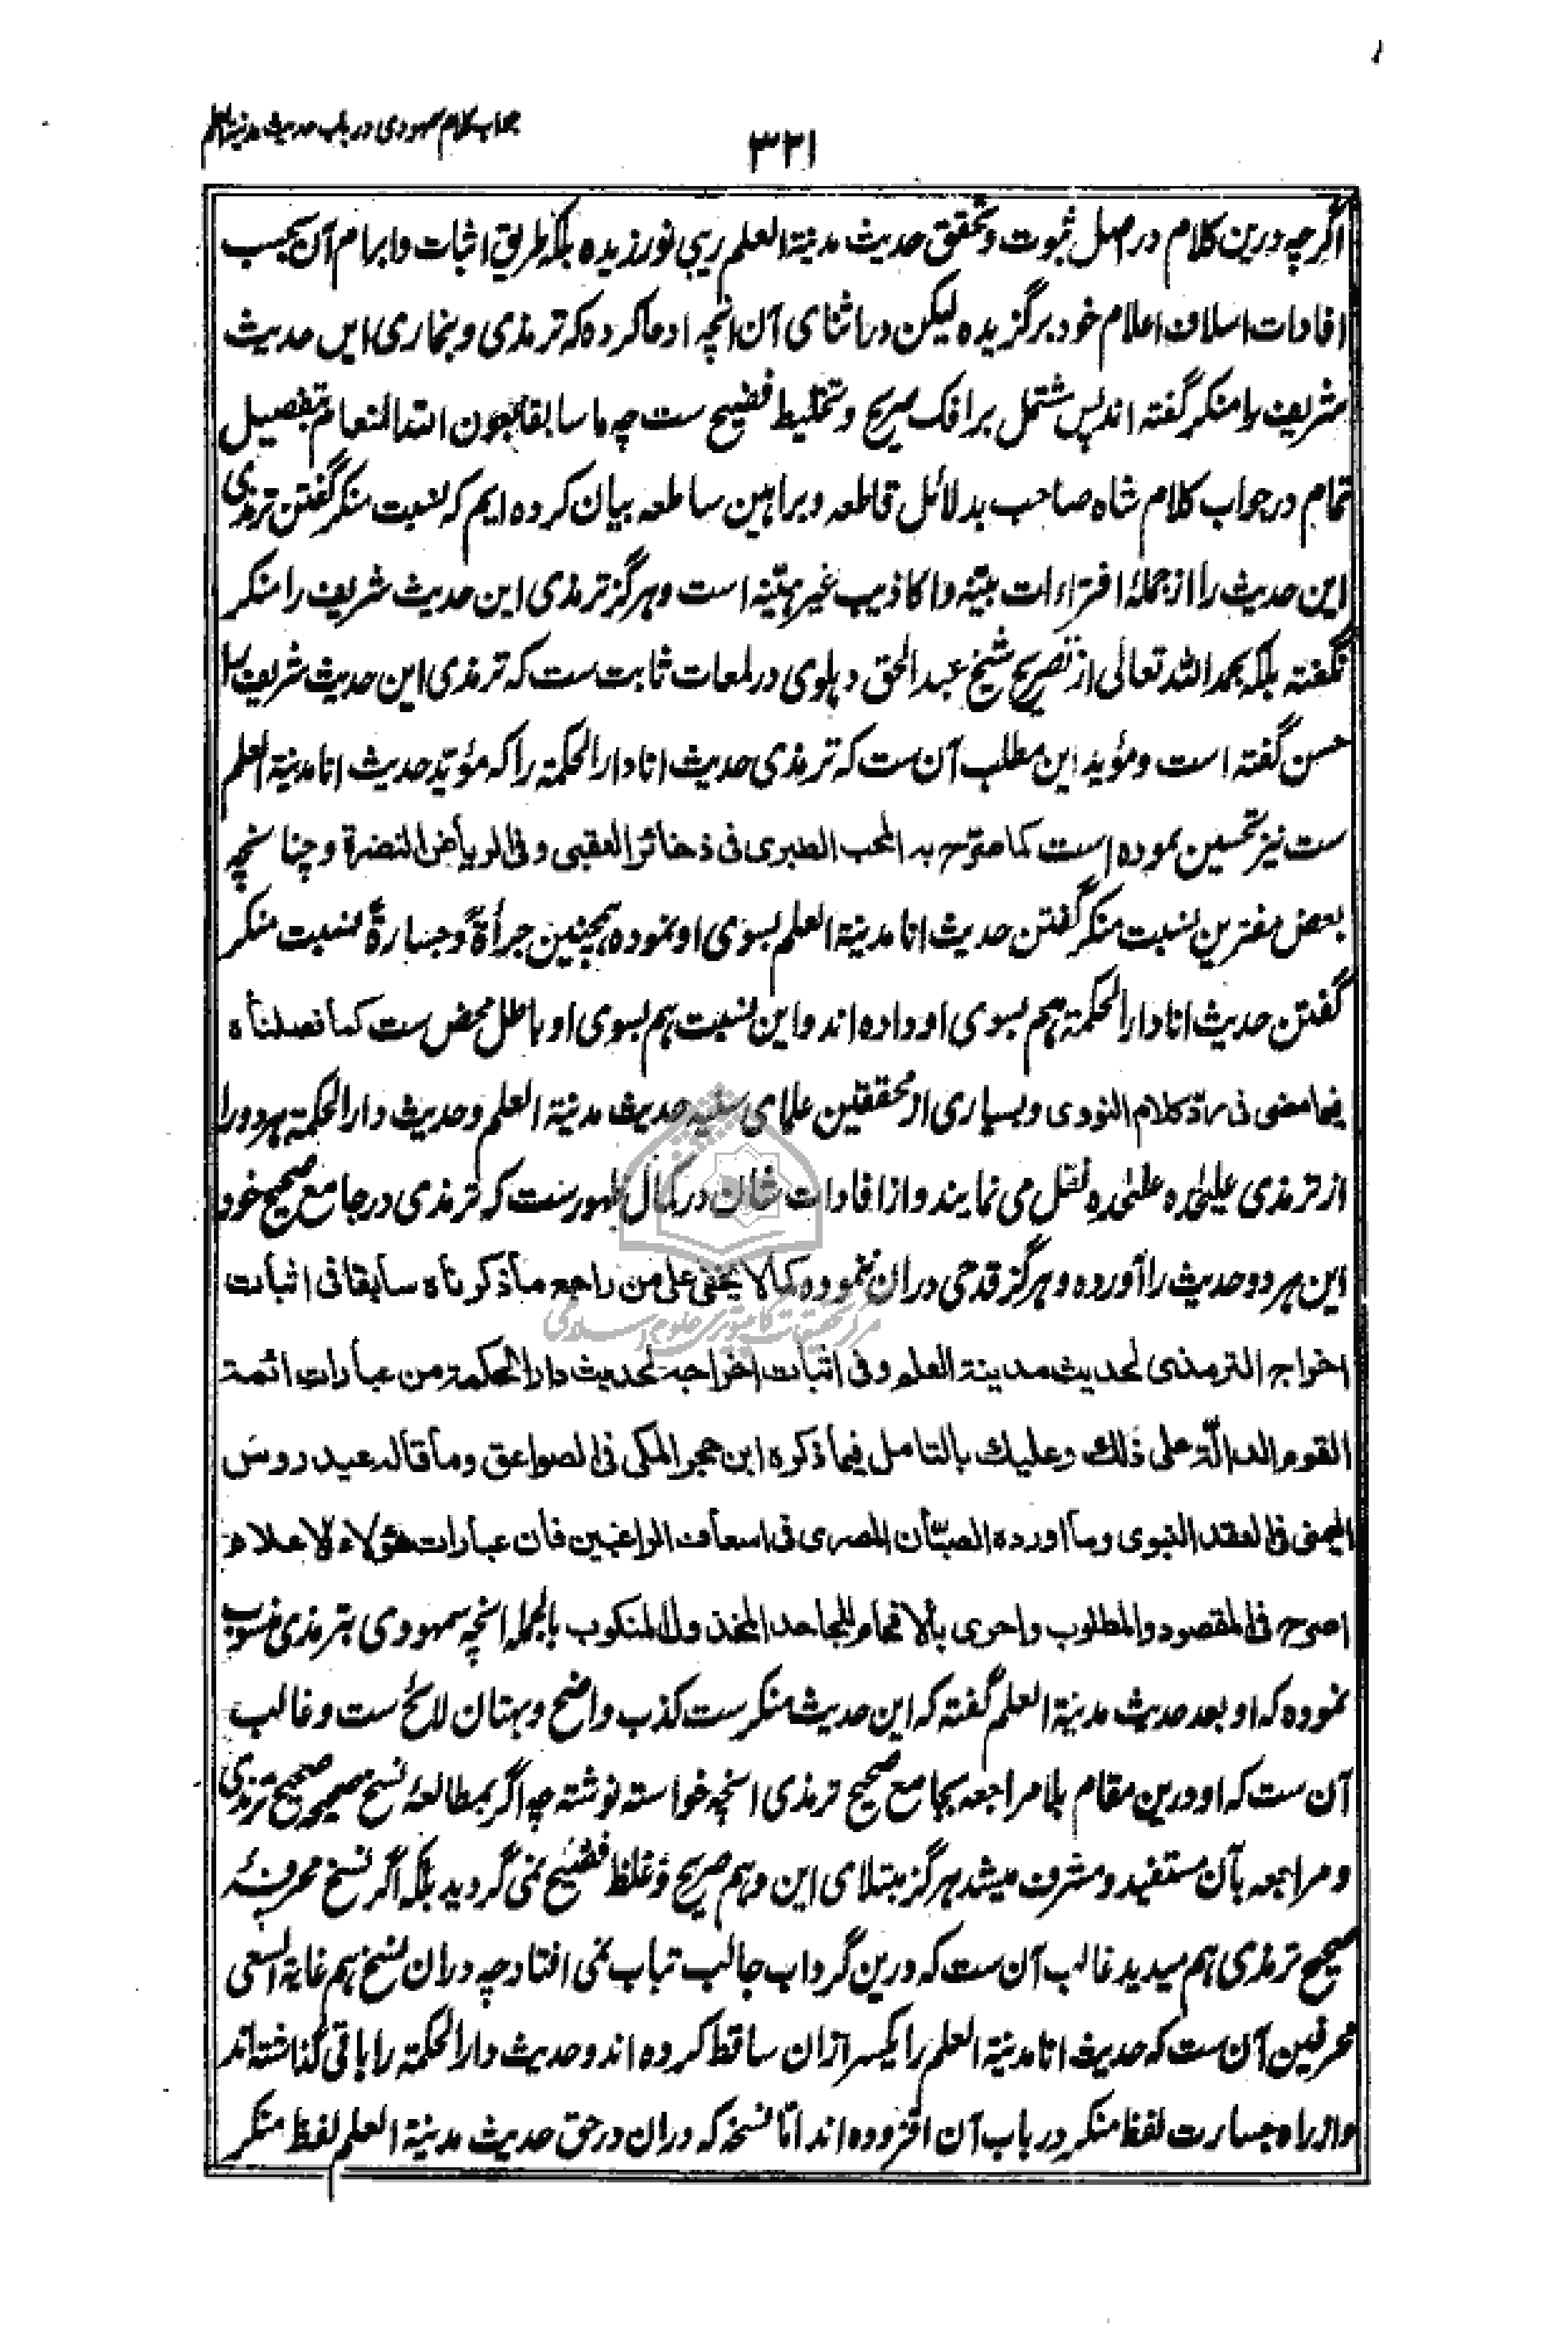 جواب کلام سمهودی در باب حدیث مدینة العلم
۳۲۱
اگرچه درین کلام در اصل ثبوت و تحقق حدیث مدینة العلم ریبی نورزیده بلکه طریق اثبات و ابرام آن بحسب
افادات اسلاف اعلام خود برگزیده لیکن در اثنای آن انچه ادعا کرده که ترمذی و بخاری این حدیث
شریف را منکر گفته اند پس مشتمل بر افک صریح و تخلیط فضیح ست چه ما سابقا بعون الله المنعام بتفصیل
تمام در جواب کلام شاه صاحب بدلائل قاطعه و براهین ساطعه بیان کرده ایم که نسبت منکر گفتن ترمذی
این حدیث را از جملهٔ افتراءات بیّنه و اکاذیب غیر هیّنه است و هرگز ترمذی این حدیث شریف را منکر
نگفته بلکه بحمد الله تعالی از تصریح شیخ عبد الحق دهلوی در لمعات ثابت ست که ترمذی این حدیث شریف را
حسن گفته است و مؤید این مطلب آن ست که ترمذی حدیث انا دار الحکمة را که مؤیّد حدیث انا مدینة العلم
ست نیز تحسین نموده است کما صرّح به المحب الطبری فی ذخائر العقبی و فی الریاض النضرة و چنانچه
بعض مفترین نسبت منکر گفتن حدیث انا مدینة العلم بسوی او نموده همچنین جرأةً و جسارةً نسبت منکر
گفتن حدیث انا دار الحکمة هم بسوی او داده اند و این نسبت هم بسوی او باطل محض ست کما فصلناه
فیما مضی فی ردّ کلام النودی و بسیاری از محققین علمای سنیه حدیث مدینة العلم و حدیث دار الحکمة هر دو را
از ترمذی علیٰحده علیٰحده نقل می نمایند و از افادات شان در کمال ظهورست که ترمذی در جامع صحیح خود
این هر دو حدیث را آورده و هرگز قدحی دران ننموده کما لا یخفی علی من راجع ما ذکرناه سابقا فی اثبات
اخراج الترمذی لحدیث مدینة العلم و فی اثبات اخراجه لحدیث دار الحکمة من عبارات ائمة
القوم الدالّة علی ذلک و علیک بالتامل فیما ذکره ابن حجر المکی فی الصواعق و ما قاله عیدروس
الیمنی فی العقد النبوی و ما اورده الصبّان المصری فی اسعاف الراغبین فان عبارات هؤلاء الاعلام
اصرح فی المقصود و المطلوب و احری بالافحام للجاحد المخذول المنکوب بالجمله انچه سمهودی بترمذی منسوب
نموده که او بعد حدیث مدینة العلم گفته که این حدیث منکر ست کذب واضح و بهتان لائح ست و غالب
آن ست که او درین مقام بلا مراجعه بجامع صحیح ترمذی انچه خواسته نوشته چه اگر بمطالعهٔ نسخ صحیحه صحیح ترمذی
و مراجعه بآن مستفید و مشرف میشد هرگز مبتلای این وهم صریح و غلط فضیح نمی گردید بلکه اگر نسخ محرفهٔ
صحیح ترمذی هم میدید غالب آن ست که درین گرداب جالب تباب نمی افتاد چه دران نسخ هم غایة السعی
محرفین آن ست که حدیث انا مدینة العلم را یکسر ازان ساقط کرده اند و حدیث دار الحکمة را باقی گذاشته اند
و از راه جسارت لفظ منکر در باب آن افزوده اند امّا نسخه که دران در حق حدیث مدینة العلم لفظ منکر
مرکز تحقیقات کامپیوتری علوم اسلامی